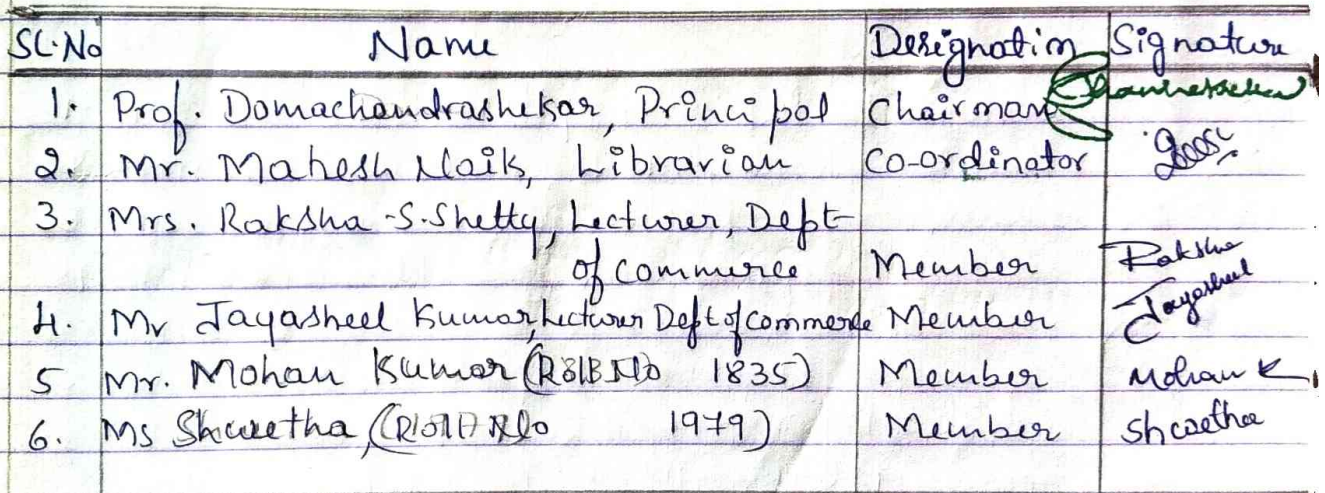 SL.No Name Designation Signature
1. Prof. Domachandrashekar, Principal Chairman
2. Mr. Mahesh Naik, Librarian Co-ordinator
3. Mrs. Raksha .S. Shetty, Lecturer, Dept
of commerce Member Raksha
4. Mr Jayasheel Kumar, Lecturer Dept of commerce Member Jayasheel
5 Mr. Mohan Kumar ( No 1835) Member Mohan K
6. Ms Shwetha, ( No 1979) Member Shwetha